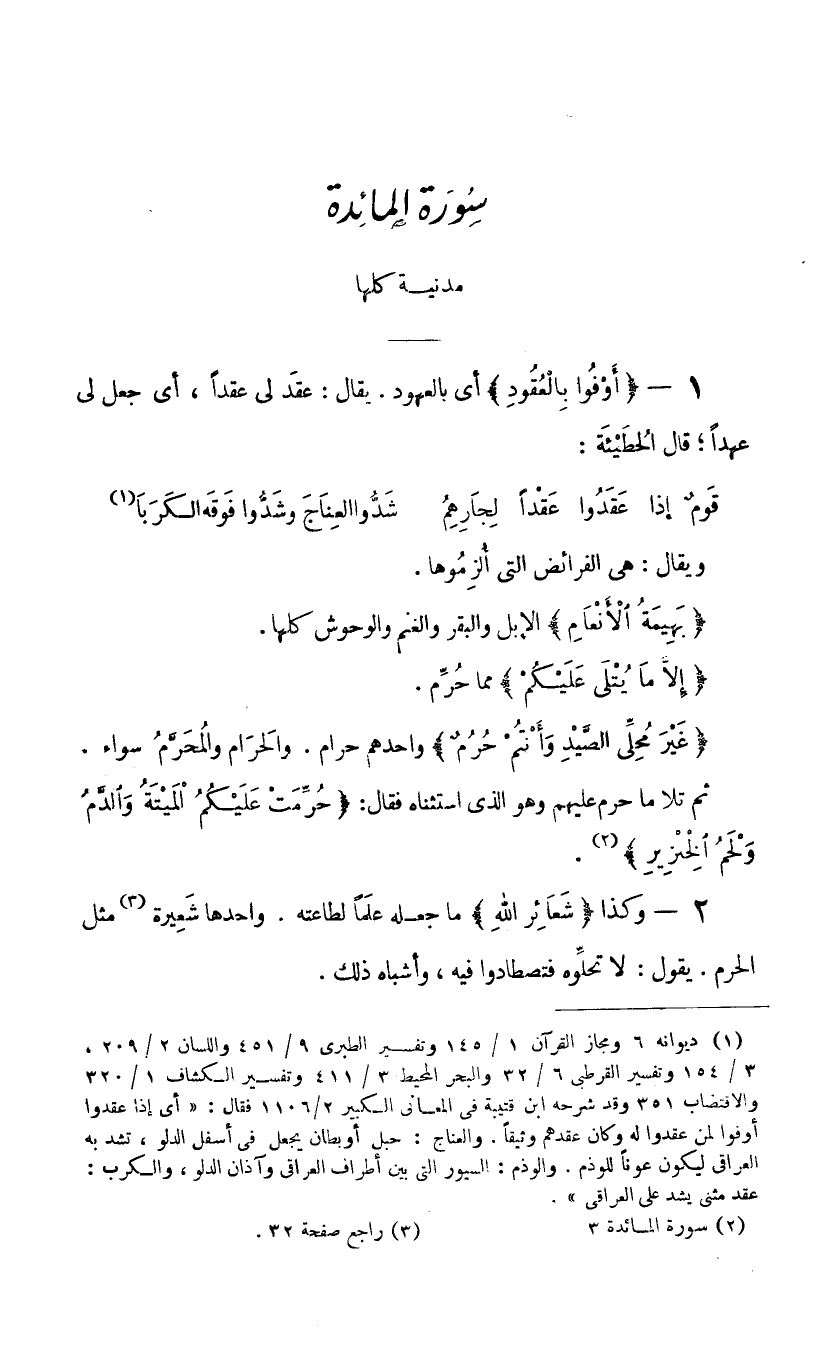 سُورَة المائِدة
مدنية كلها
١ — ﴿ أَوْفُوا بِالْعُقُودِ ﴾ أى بالعهود . يقال : عقَد لى عقداً ، أى جعل لى
عهداً ؛ قال الحُطَيْئَة :
قَومٌ إذا عَقَدُوا عَقْداً لِجارِهِمُ شَدُّوا العِنَاجَ وشَدُّوا فَوقَه الكَرَبَا(١)
ويقال : هى الفرائض التى أُلزِمُوها .
﴿ بَهِيمَةُ ٱلْأَنْعَامِ ﴾ الإبل والبقر والغنم والوحوش كلها .
﴿ إِلاَّ مَا يُتْلَى عَلَيْكُمْ ﴾ مما حُرِّم .
﴿ غَيْرَ مُحِلِّى الصَّيْدِ وَأَنْتُمْ حُرُمٌ ﴾ واحدهم حرام . والحَرَام والمُحَرَّمُ سواء .
ثم تلا ما حرم عليهم وهو الذى استثناه فقال : ﴿ حُرِّمَتْ عَلَيْكُمُ ٱلْمَيْتَةُ وَٱلدَّمُ
وَلَحْمُ ٱلْخِنْزِيرِ ﴾(٢) .
٢ — وكذا ﴿ شَعَائِر اللهِ ﴾ ما جعله علَماً لطاعته . واحدها شَعِيرة(٣) مثل
الحرم . يقول : لا تحلِّوه فتصطادوا فيه ، وأشباه ذلك .
(١) ديوانه ٦ ومجاز القرآن ١ / ١٤٥ وتفسير الطبرى ٩ / ٤٥١ واللسان ٢ / ٢٠٩ ،
٣ / ١٥٤ وتفسير القرطبى ٦ / ٣٢ والبحر المحيط ٣ / ٤١١ وتفسير الكشاف ١ / ٣٢٠
والاقتضاب ٣٥١ وقد شرحه ابن قتيبة فى المعانى الكبير ٢/ ١١٠٦ فقال : « أى إذا عقدوا
أوفوا لمن عقدوا له وكان عقدهم وثيقاً . والعناج : حبل أوبطان يجعل فى أسفل الدلو ، تشد به
العراقى ليكون عوناً للوذم . والوذم : السيور التى بين أطراف العراقى وآذان الدلو ، والكرب :
عقد مثنى يشد على العراقى » .
(٢) سورة المائدة ٣ (٣) راجع صفحة ٣٢ .